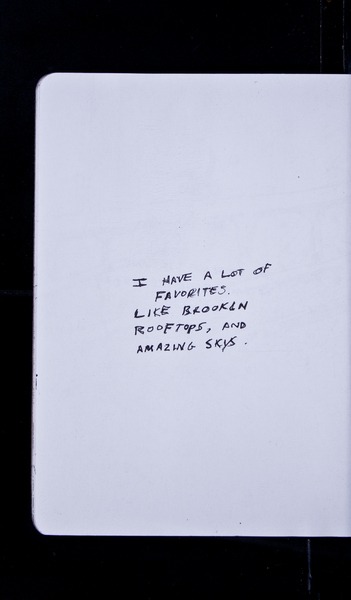 I HAVE A LOT OF
FAVORITES.
LIKE BROOKLN
ROOFTOPS, AND
AMAZING SKYS.